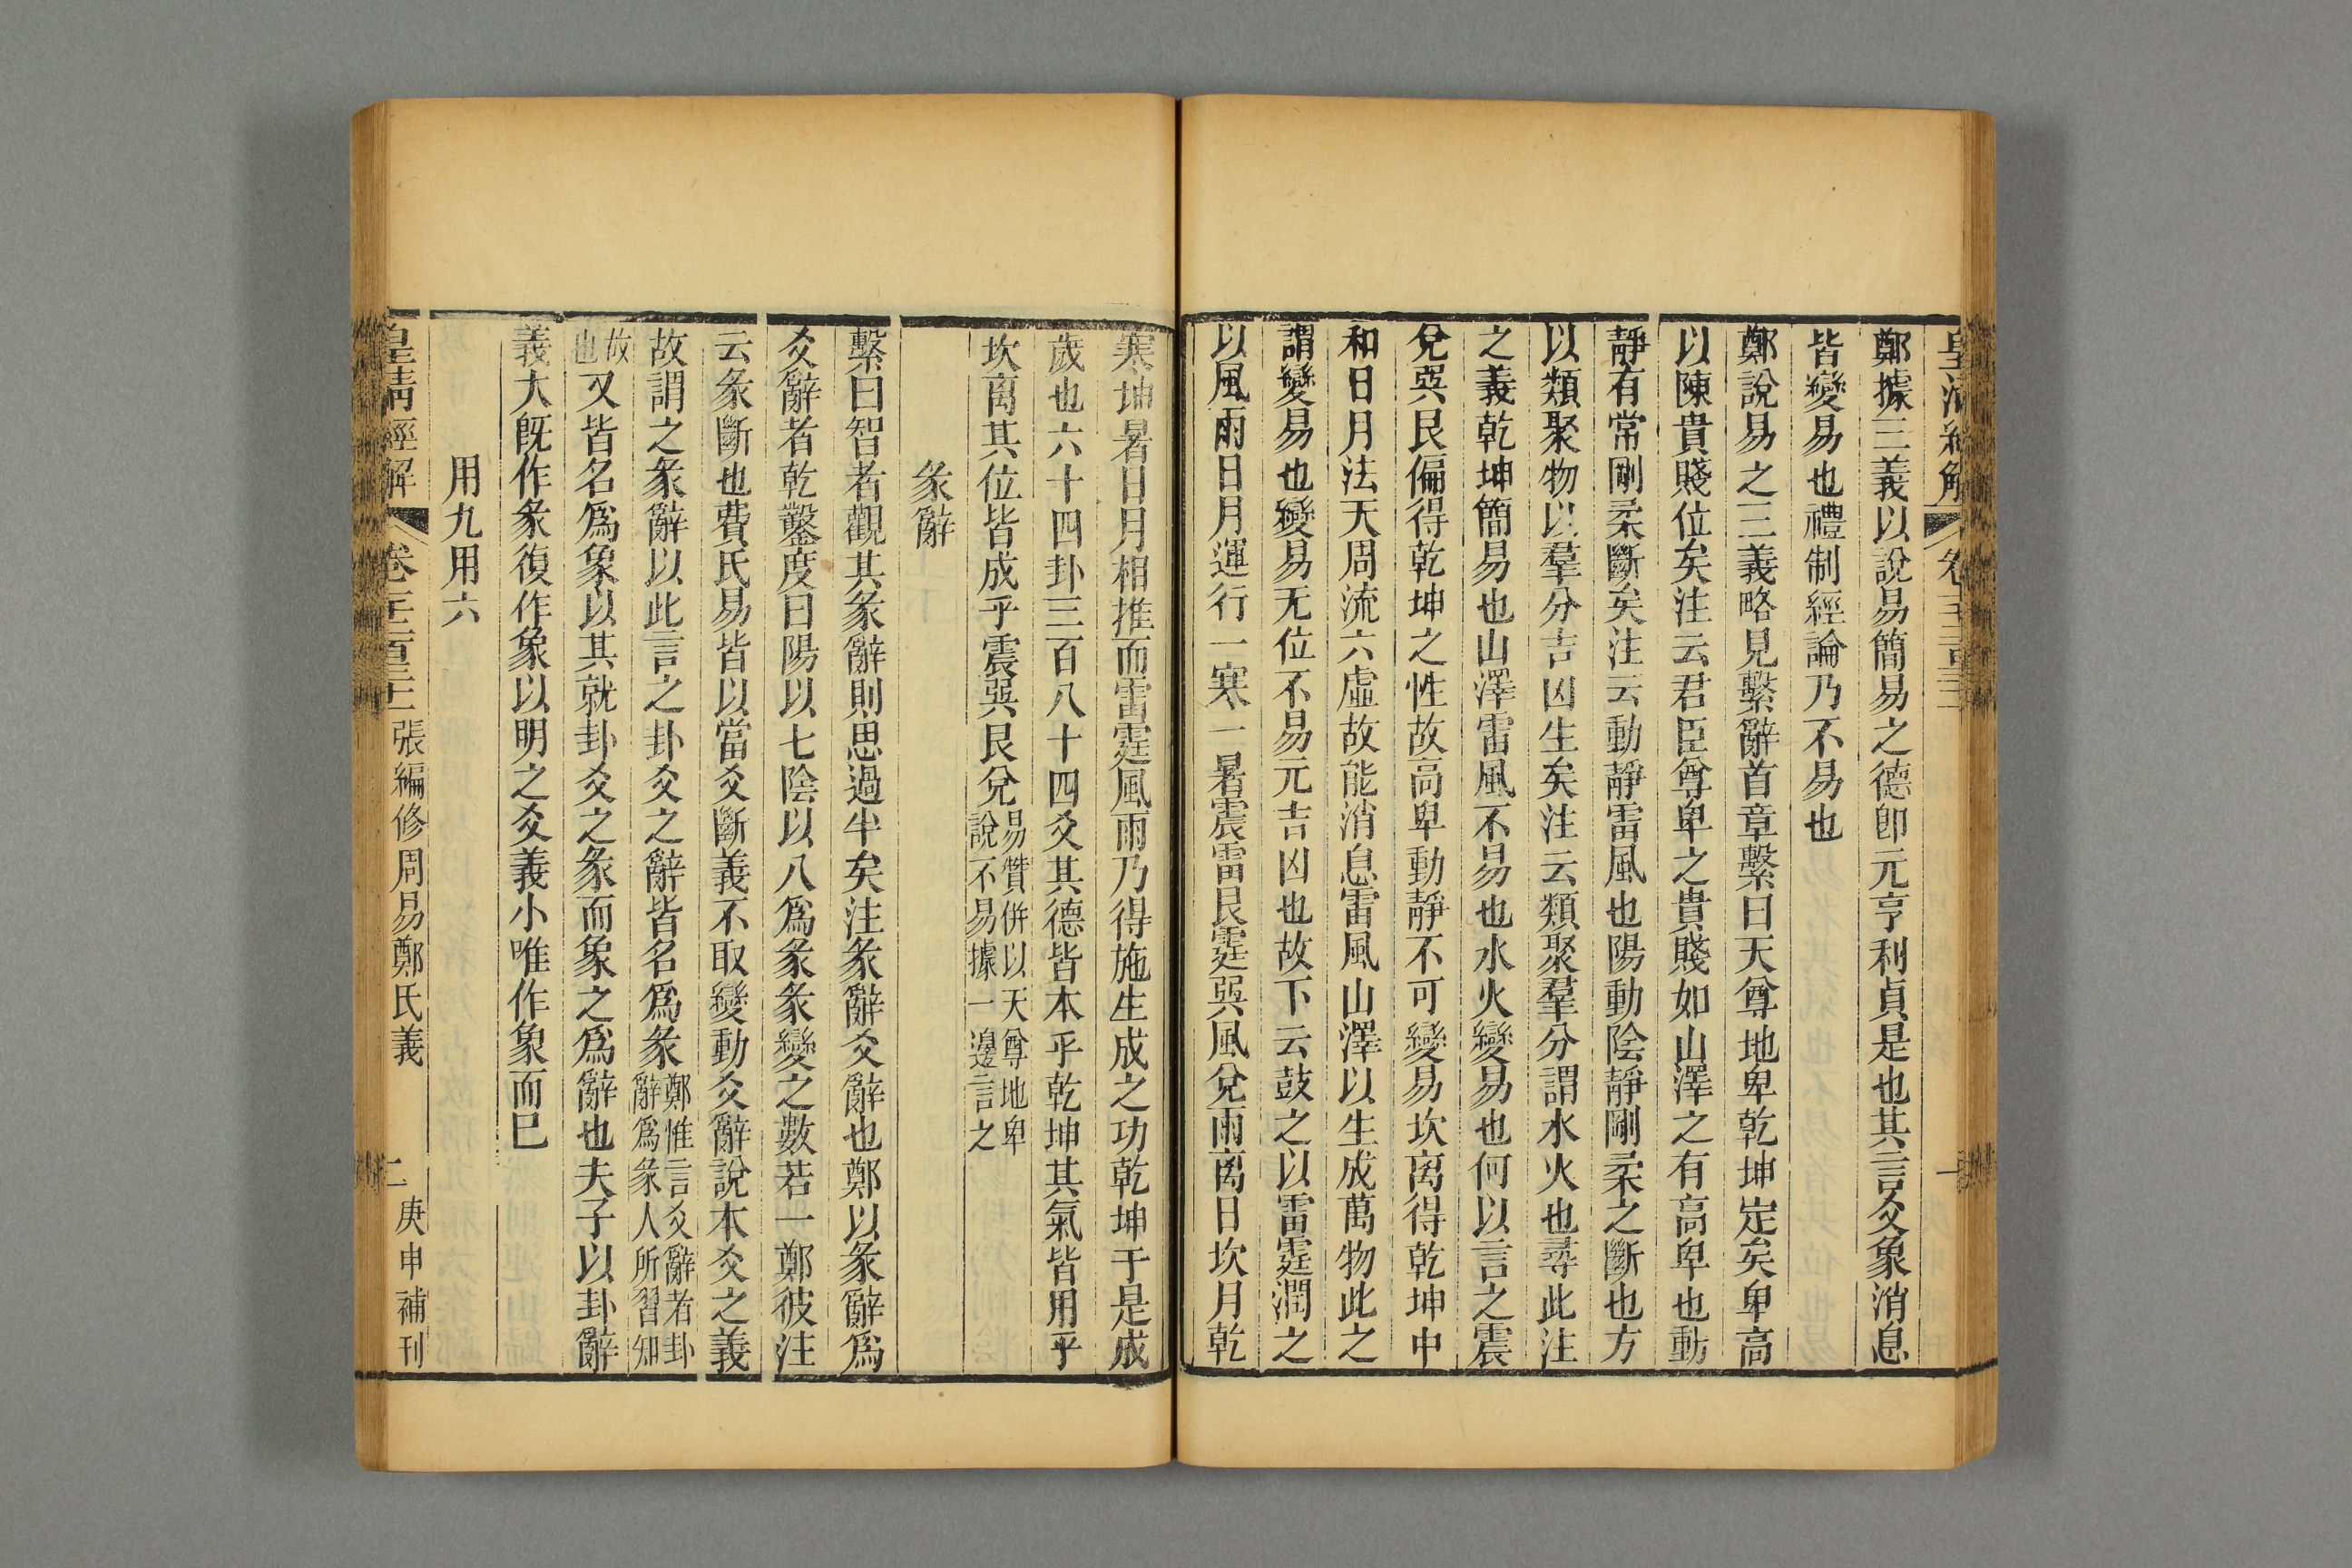 鄭據三義以說易簡易之德卽元亨利貞是也其言爻象消息
皆變易也禮制經論乃不易也
鄭說易之三義略見繫辭首章繫曰天尊地卑乾坤定矣卑高
以陳貴賤位矣注云君臣尊卑之貴賤如山澤之有高卑也動
靜有常剛柔斷矣注云動靜雷風也陽動陰靜剛柔之斷也方
以類聚物以羣分吉凶生矣注云類聚羣分謂水火也尋此注
之義乾坤簡易也山澤雷風不易也水火變易也何以言之震
兌巽艮偏得乾坤之性故高卑動靜不可變易坎离得乾坤中
和日月法天周流六虛故能消息雷風山澤以生成萬物此之
謂變易也變易无位不易元吉凶也故下云鼓之以雷霆潤之
以風雨日月運行一寒一暑震雷艮霆巽風兌雨离日坎月乾
寒坤暑日月相推而雷霆風雨乃得施生成之功乾坤于是成
歲也六十四卦三百八十四爻其德皆本乎乾坤其氣皆用乎
坎离其位皆成乎震巽艮兌易贊併以天尊地卑說不易據一邊言之
彖辭
繫曰智者觀其彖辭則思過半矣注彖辭爻辭也鄭以彖辭爲
爻辭者乾鑿度曰陽以七陰以八爲彖彖變之數若一鄭彼注
云彖斷也費氏易皆以當爻斷義不取變動爻辭說本爻之義
故謂之彖辭以此言之卦爻之辭皆名爲彖鄭惟言爻辭者卦辭爲彖人所習知
故也又皆名爲象以其就卦爻之彖而象之爲辭也夫子以卦辭
義大旣作彖復作象以明之爻義小唯作象而巳
用九用六
皇清經解 卷 張編修周易鄭氏義 二 庚申補刊